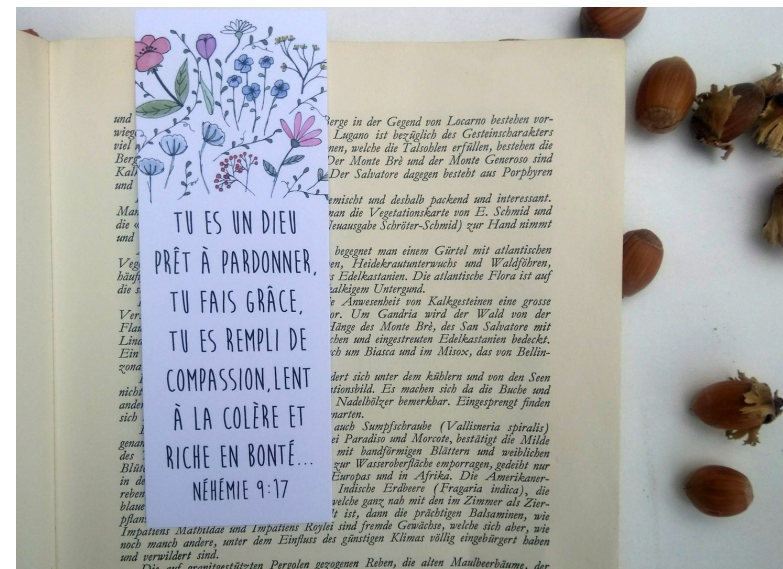 TU ES UN DIEU
PRÊT À PARDONNER,
TU FAIS GRÂCE,
TU ES REMPLI DE
COMPASSION, LENT
À LA COLÈRE ET
RICHE EN BONTÉ...
NÉHÉMIE 9:17
und Berge in der Gegend von Locarno bestehen vor-
Lugano ist bezüglich des Gesteinscharakters
viel welche die Talsohlen erfüllen, bestehen die
Berg Der Monte Brè und der Monte Generoso sind
Der Salvatore dagegen besteht aus Porphyren
und
und deshalb packend und interessant.
man die Vegetationskarte von E. Schmid und
die Neuausgabe Schröter-Schmid) zur Hand nimmt
und
begegnet man einem Gürtel mit atlantischen
Heidekrautunterwuchs und Waldföhren,
Edelkastanien. Die atlantische Flora ist auf
die kalkigem Untergund.
Anwesenheit von Kalkgesteinen eine grosse
Um Gandria wird der Wald von der
Hänge des Monte Brè, des San Salvatore mit
und eingestreuten Edelkastanien bedeckt.
Ein um Biasca und im Misox, das von Bellin-
zona
sich unter dem kühlern und von den Seen
nicht Es machen sich da die Buche und
Nadelhölzer bemerkbar. Eingesprengt finden
sich
auch Sumpfschraube (Vallisneria spiralis)
bei Paradiso und Morcote, bestätigt die Milde
des mit bandförmigen Blättern und weiblichen
zur Wasseroberfläche emporragen, gedeiht nur
in Europas und in Afrika. Die Amerikaner-
Indische Erdbeere (Fragaria indica), die
welche ganz nah mit den im Zimmer als Zier-
ist, dann die prächtigen Balsaminen, wie
Impatiens Mathildae und Impatiens Roylei sind fremde Gewächse, welche sich aber, wie
noch manch andere, unter dem Einfluss des günstigen Klimas völlig eingebürgert haben
und verwildert sind.
Die auf granitgestützten Pergolen gezogenen Reben, die alten Maulbeerbäume, der